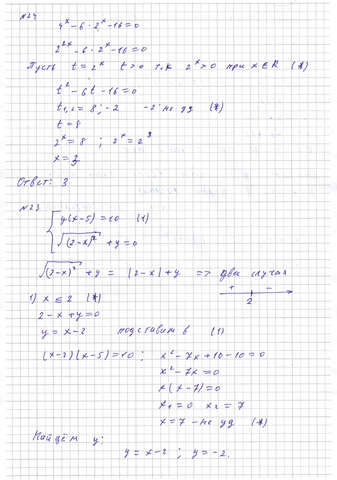 №24
4^x - 6 · 2^x - 16 = 0
2^{2x} - 6 · 2^x - 16 = 0
Пусть t = 2^x t > 0 т.к 2^x > 0 при x ∈ R (*)
t² - 6t - 16 = 0
t₁,₂ = 8 ; -2 -2 не уд (*)
t = 8
2^x = 8 ; 2^x = 2³
x = 3
Ответ: 3
№23
{ y(x-5) = 10 (1)
√(2-x)² + y = 0
√(2-x)² + y = |2-x| + y => два случая
+ -
2
1) x ≤ 2 (*)
2 - x + y = 0
y = x - 2 подставим в (1)
(x-2)(x-5) = 10 ; x² - 7x + 10 - 10 = 0
x² - 7x = 0
x(x-7) = 0
x₁ = 0 x₂ = 7
x = 7 - не уд (*)
Найдём y:
y = x - 2 ; y = -2.